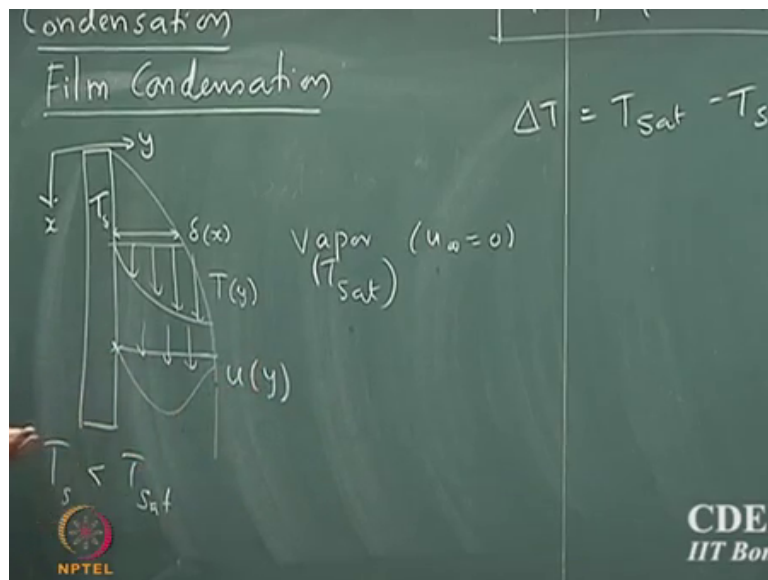 Condensation
Film Condensation
ΔT = Tsat - Ts
y
x
Ts
δ(x)
Vapor (u∞ = 0)
(Tsat)
T(y)
u(y)
Ts < Tsat
NPTEL
CDE
IIT Bom